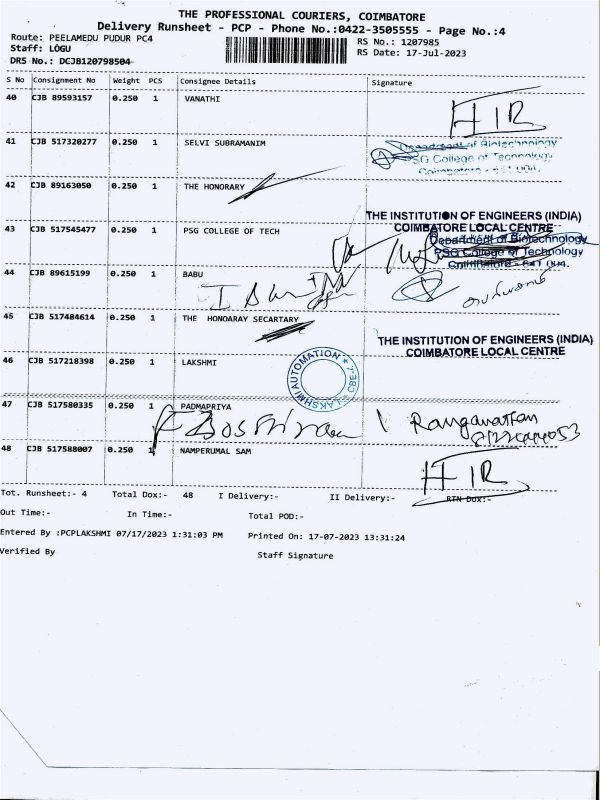 THE PROFESSIONAL COURIERS, COIMBATORE
Delivery Runsheet - PCP - Phone No.:0422-3505555 - Page No.:4
Route: PEELAMEDU PUDUR PC4
RS No.: 1207985
Staff: LOGU
RS Date: 17-Jul-2023
DRS No.: DCJB120798504
S No Consignment No Weight PCS Consignee Details Signature
40 CJB 89593157 0.250 1 VANATHI
HIR
41 CJB 517320277 0.250 1 SELVI SUBRAMANIM
Department of Biotechnology
PSG College of Technology
Coimbatore - 641 004.
42 CJB 89163050 0.250 1 THE HONORARY
THE INSTITUTION OF ENGINEERS (INDIA)
COIMBATORE LOCAL CENTRE
43 CJB 517545477 0.250 1 PSG COLLEGE OF TECH
Department of Biotechnology
PSG College of Technology
Coimbatore - 641 004.
44 CJB 89615199 0.250 1 BABU
45 CJB 517484614 0.250 1 THE HONOARAY SECARTARY
THE INSTITUTION OF ENGINEERS (INDIA)
COIMBATORE LOCAL CENTRE
46 CJB 517218398 0.250 1 LAKSHMI
LAKSHMI AUTOMATION
47 CJB 517580335 0.250 1 PADMAPRIYA
Ranganathan
48 CJB 517588007 0.250 1 NAMPERUMAL SAM
HIR
Tot. Runsheet:- 4 Total Dox:- 48 I Delivery:- II Delivery:- RTN Dox:-
Out Time:- In Time:- Total POD:-
Entered By :PCPLAKSHMI 07/17/2023 1:31:03 PM Printed On: 17-07-2023 13:31:24
Verified By Staff Signature